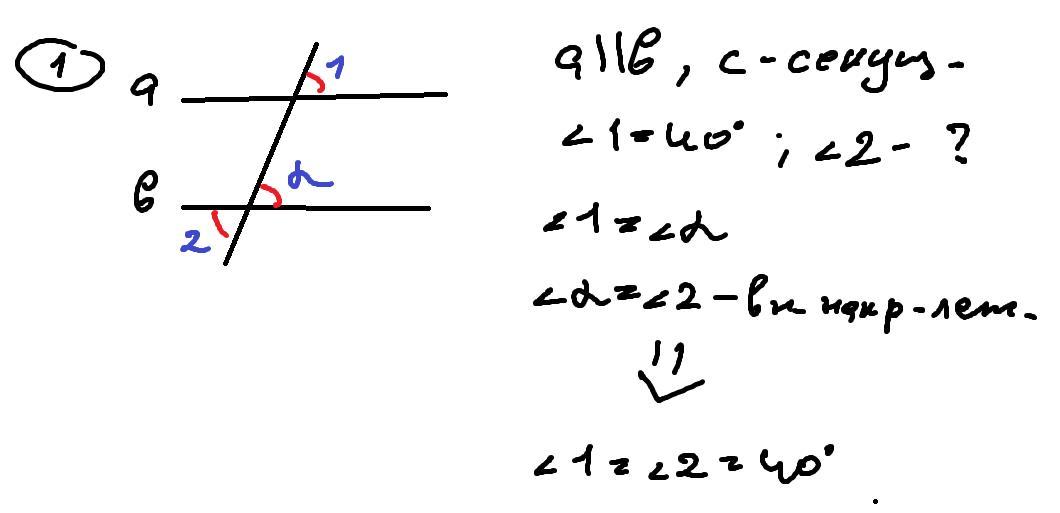 1
a
1
b
α
2
a||b, c - секущ.
∠1=40° ; ∠2 - ?
∠1=∠α
∠α=∠2 - вн накр-леж.
∠1=∠2=40°